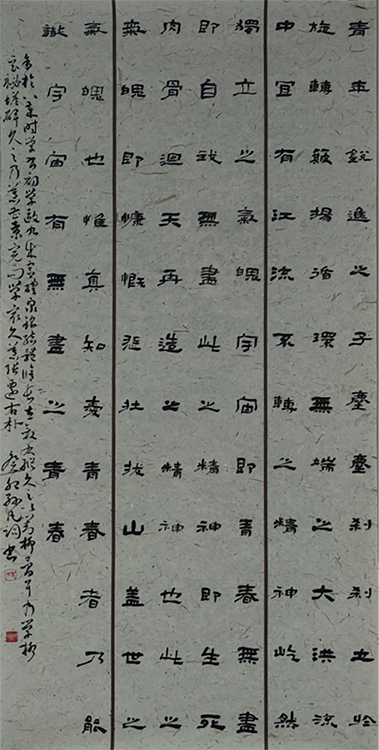 青年銳進之子塵塵刹刹立於
旋轉簸揚循環無端之大洪流
中宜有江流不轉之精神屹然
獨立之氣魄宇宙即青春無盡
即自我無盡此之精神即生死
肉骨迴天再造之精神也此之
氣魄即慷慨悲壯拔山蓋世之
氣魄也惟真知愛青春者乃能
識宇宙有無盡之青春
時學書初學歐九成宮醴泉銘
玄秘塔碑久之乃